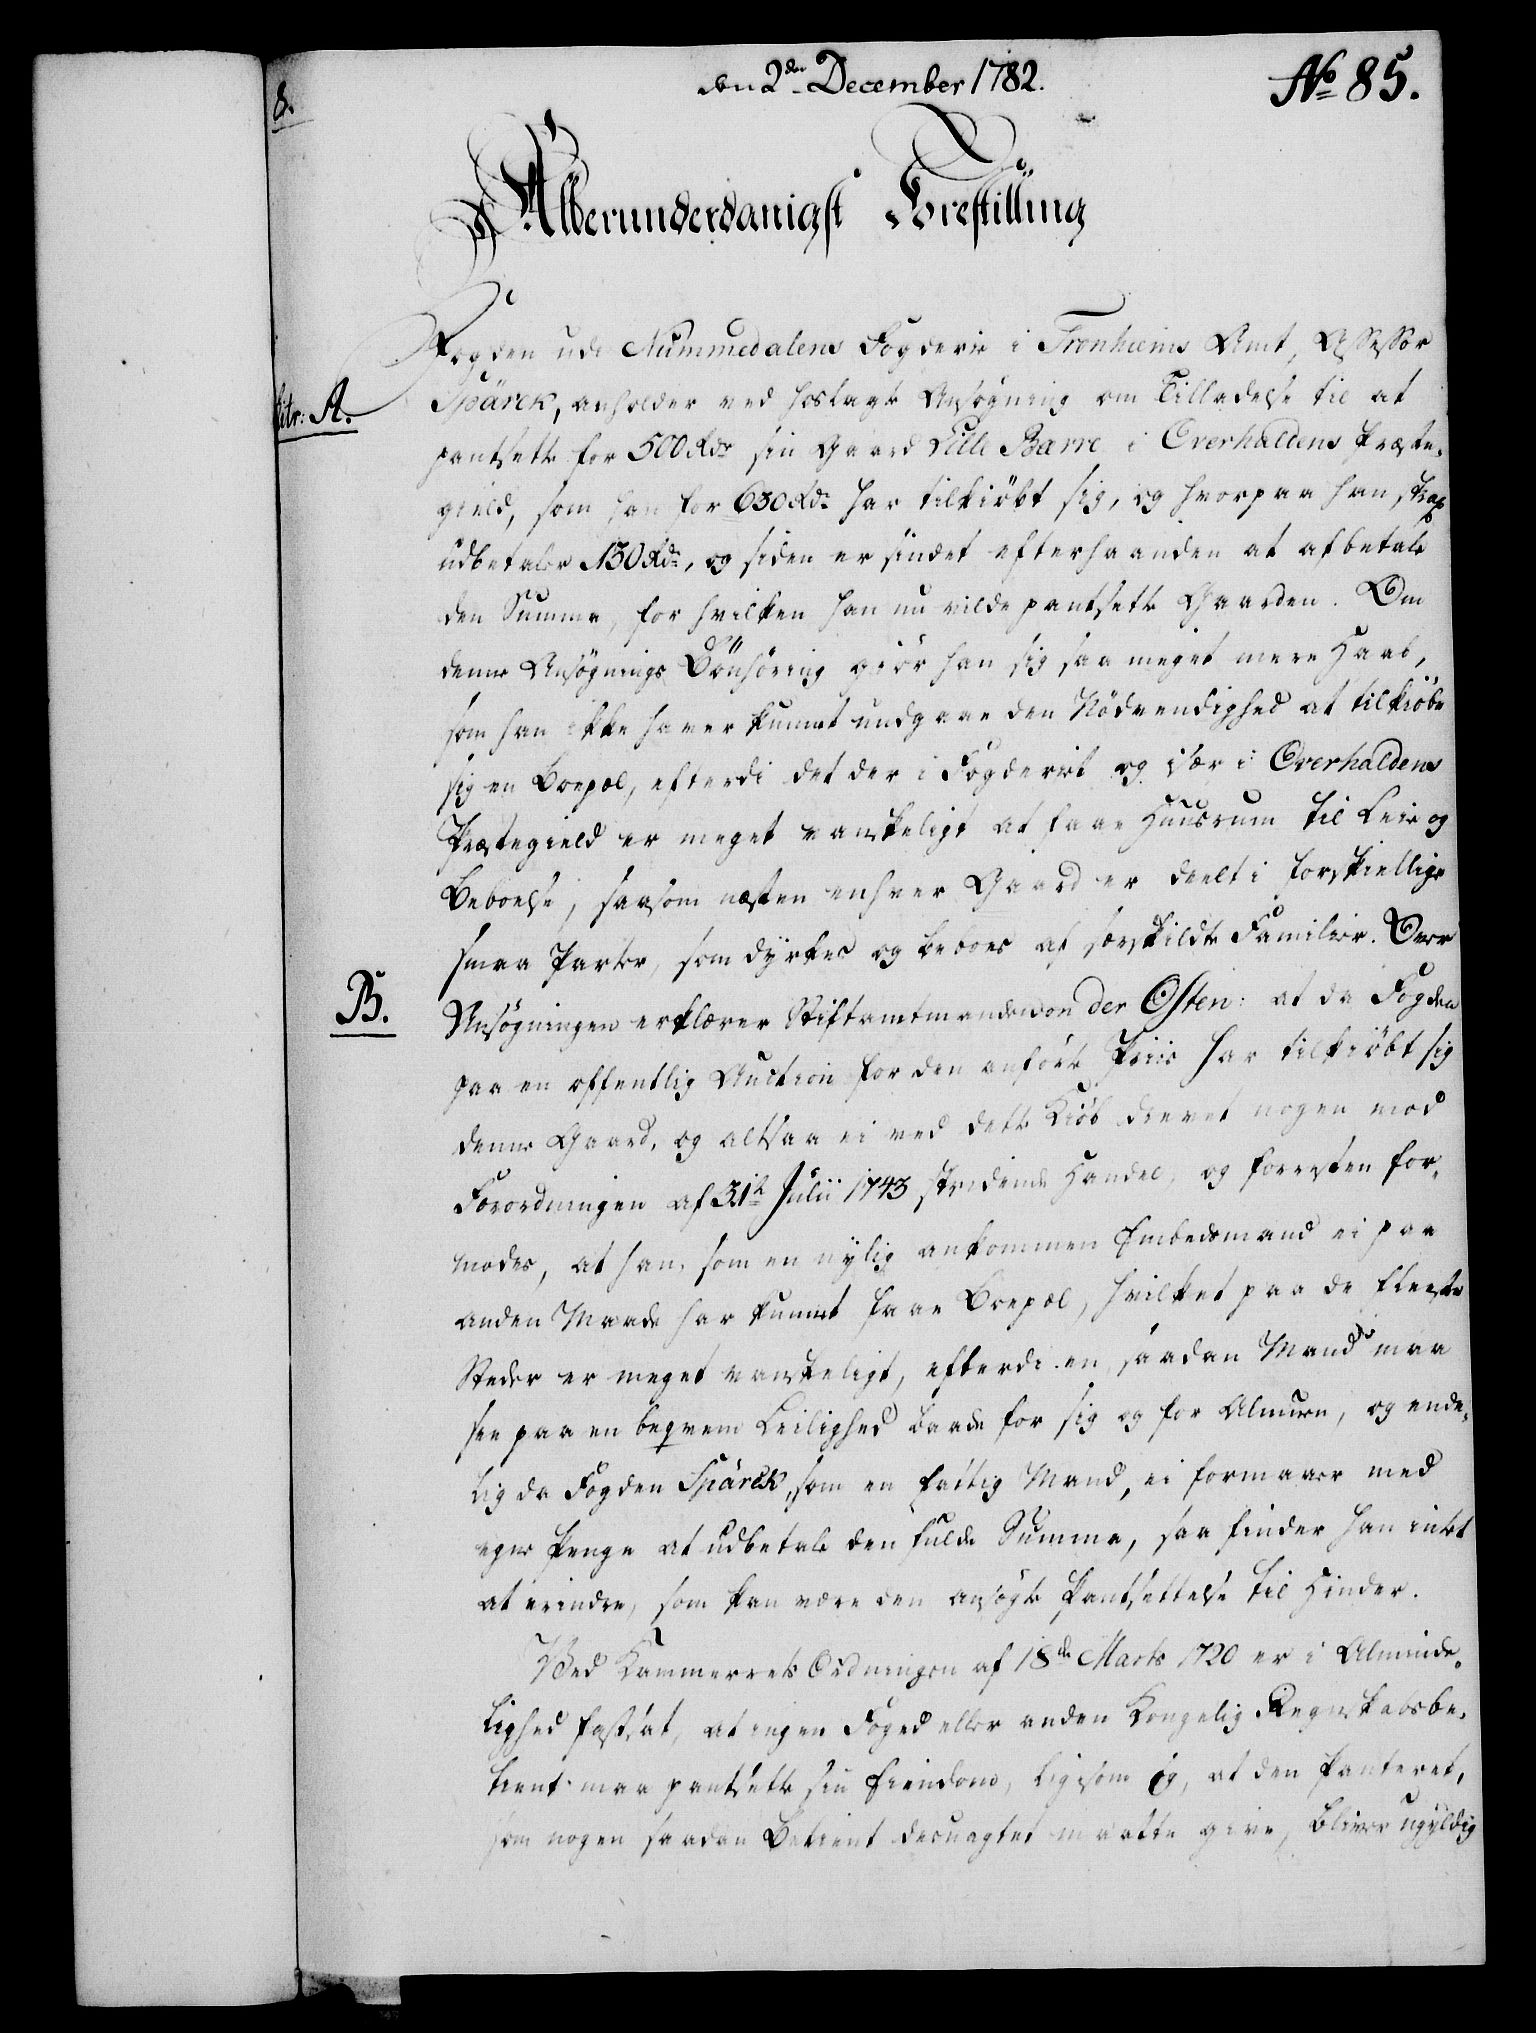 den 2den December 1782.
No 85.
8.
Allerunderdanigst Forestilling
Fogden udi Nummedalens Fogderie i Tronhiems Amt, Assessor
Litr: A.
Spärck, anholder ved hoslagte Ansøgning om Tilladelse til at
pantsætte for 500 Rdr sin Gaard Lille Barre i Overhaldens Præste-
gield, som han for 630 Rdr har tilkiöbt sig, og hvorpaa han strax
udbetaler 130 Rdr, og siden er sindet efterhaanden at afbetale
den Summa, for hvilken han nu vilde pantsette Gaarden. Om
denne Ansøgnings Bönhöring giör han sig saa meget mere Haab,
som han ikke haver kunnet undgaae den Nödvendighed at tilkiöbe
sig en Boepæl, efterdi det der i Fogderiet og især i Overhaldens
Præstegield er meget vanskeligt at faae Huusrum til Leie og
Beboelse, saasom næsten enhver Gaard er deelt i forskiellige
smaa Parter, som dyrkes og beboes af særskildte Familier. Over
B.
Ansøgningen erklærer Stiftamtmanden von der Osten: at da Fogden
paa en offentlig Auction for den anförte Priis har tilkiöbt sig
denne Gaard, og altsaa ei ved dette Kiöb drevet nogen mod
Forordningen af 31te Julii 1743 stridende Handel, og forresten for-
modes, at han, som en nylig ankommen Embedsmand ei paa
anden Maade har kunnet faae Boepæl, hvilket paa de fleeste
Steder er meget vanskeligt, efterdi en saadan Mand maa
see paa en beqvem Leilighed baade for sig og for Almuen, og ende-
lig da Fogden Spärck, som en fattig Mand, ei formaaer med
egne Penge at udbetale den fulde Summa, saa finder han intet
at erindre, som kan være den ansøgte Pantsettelse til Hinder.
Ved Kammerrets Ordningen af 18de Marts 1720 er i Alminde-
lighed fastsat, at ingen Foged eller anden Kongelig Regnskabsbe-
tient maa pantsette sin Eiendom, ligesom og, at den Panteret,
som nogen saadan Betient desuagtet maatte give, bliver ugyldig